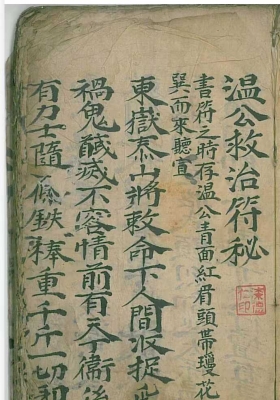 温公救治符秘
書符之時存温公青面紅眉頭帶瓊花
巽而來聽宣
東嶽泰山將敕命下人間收捉
禍鬼馘滅不容情前有天丁衛後
有力士隨一條鉄棒重千斤一切